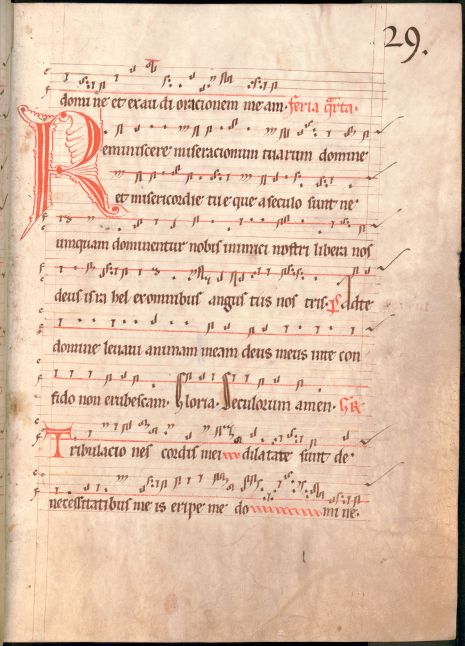 29.
domine et exau di oracionem me am. feria qrta.
Reminiscere miseracionum tuarum domine
et misericordie tue que a seculo sunt ne
umquam dominentur nobis inimici nostri libera nos
deus isra hel ex omnibus angus tiis nos tris. ps Adte
domine levavi animam meam deus meus inte con
fido non erubescam. Gloria. Seculorum amen. GR
Tribulacio nes cordis mei dilatate sunt de
necessitatibus me is eripe me do mi ne.